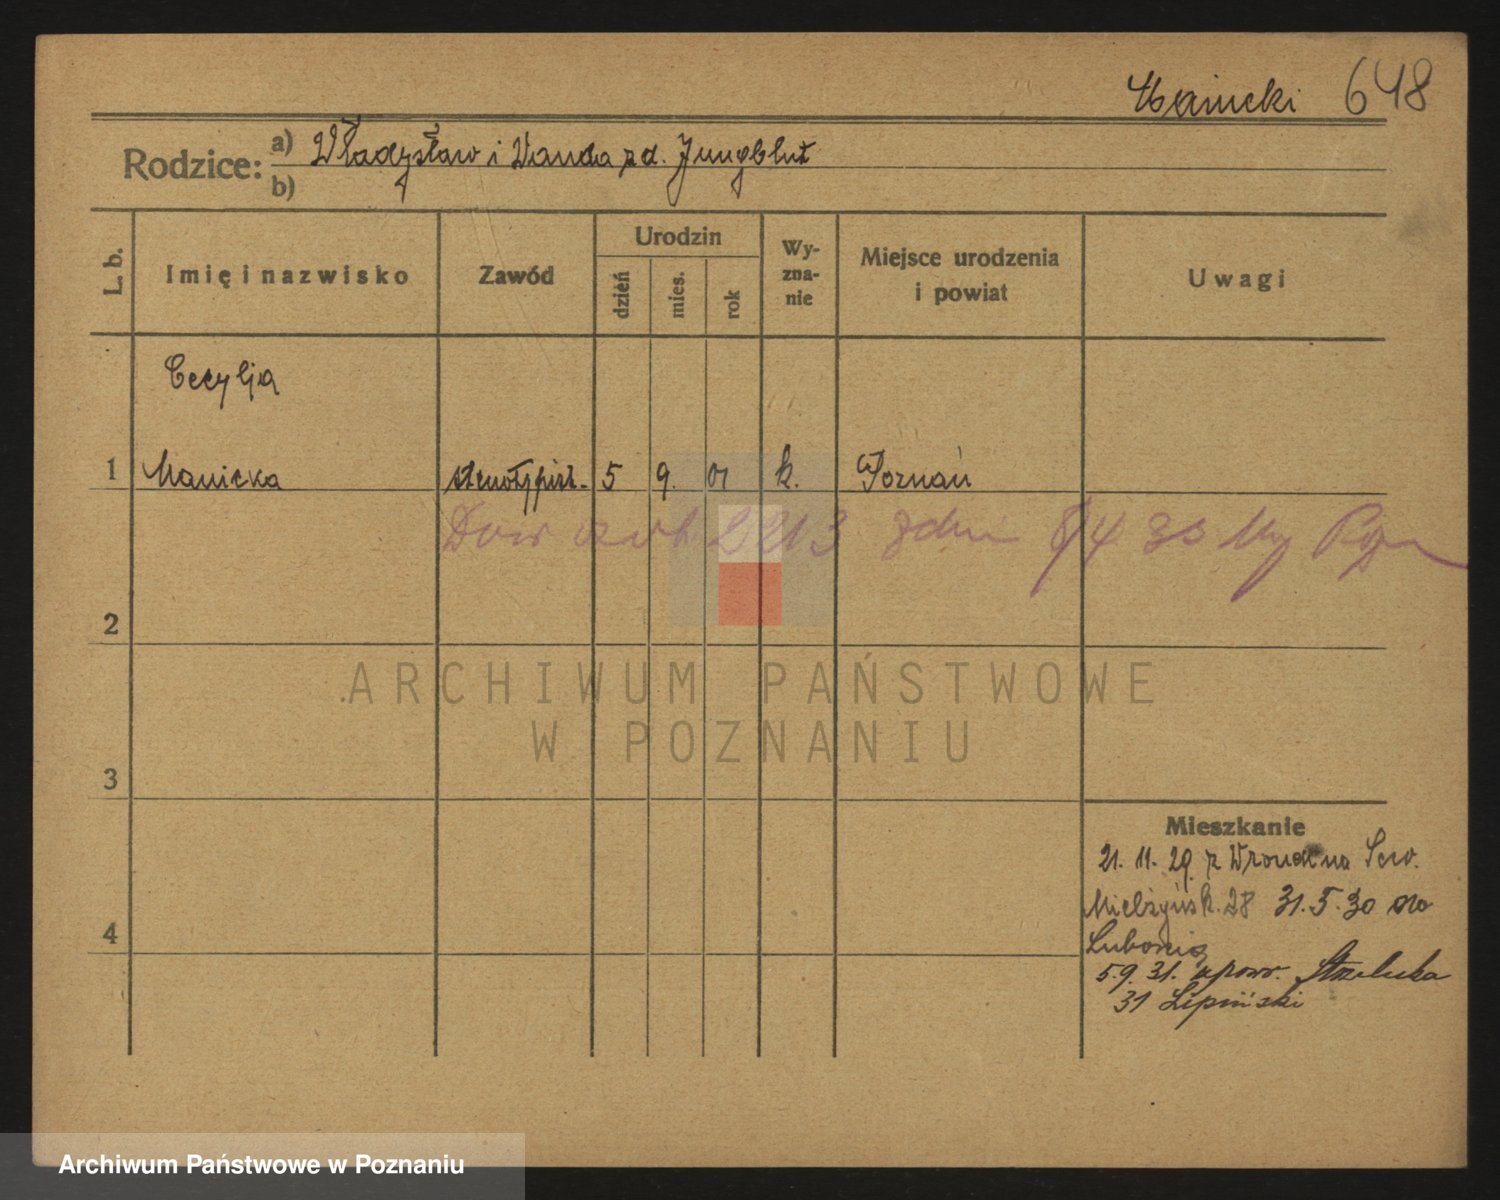 Manicki 648
Rodzice: a) Władysław i Wanda zd. Jungblut
b)
L. b.
Imię i nazwisko
Zawód
Urodzin
dzień
mies.
rok
Wy-
zna-
nie
Miejsce urodzenia
i powiat
Uwagi
Cecylja
1 Manicka stenotypist. 5 9. 01 k. Poznań
Dow osob 2213 z dnia 8/4 30
2
3
4
Mieszkanie
21. 11. 29 z Wronek na Sew.
Mielżyńsk. 28 31.5.30 do
Lubonia
5.9.31. z pow. Strzelecka
31 Lipiński
ARCHIWUM PAŃSTWOWE
W POZNANIU
Archiwum Państwowe w Poznaniu